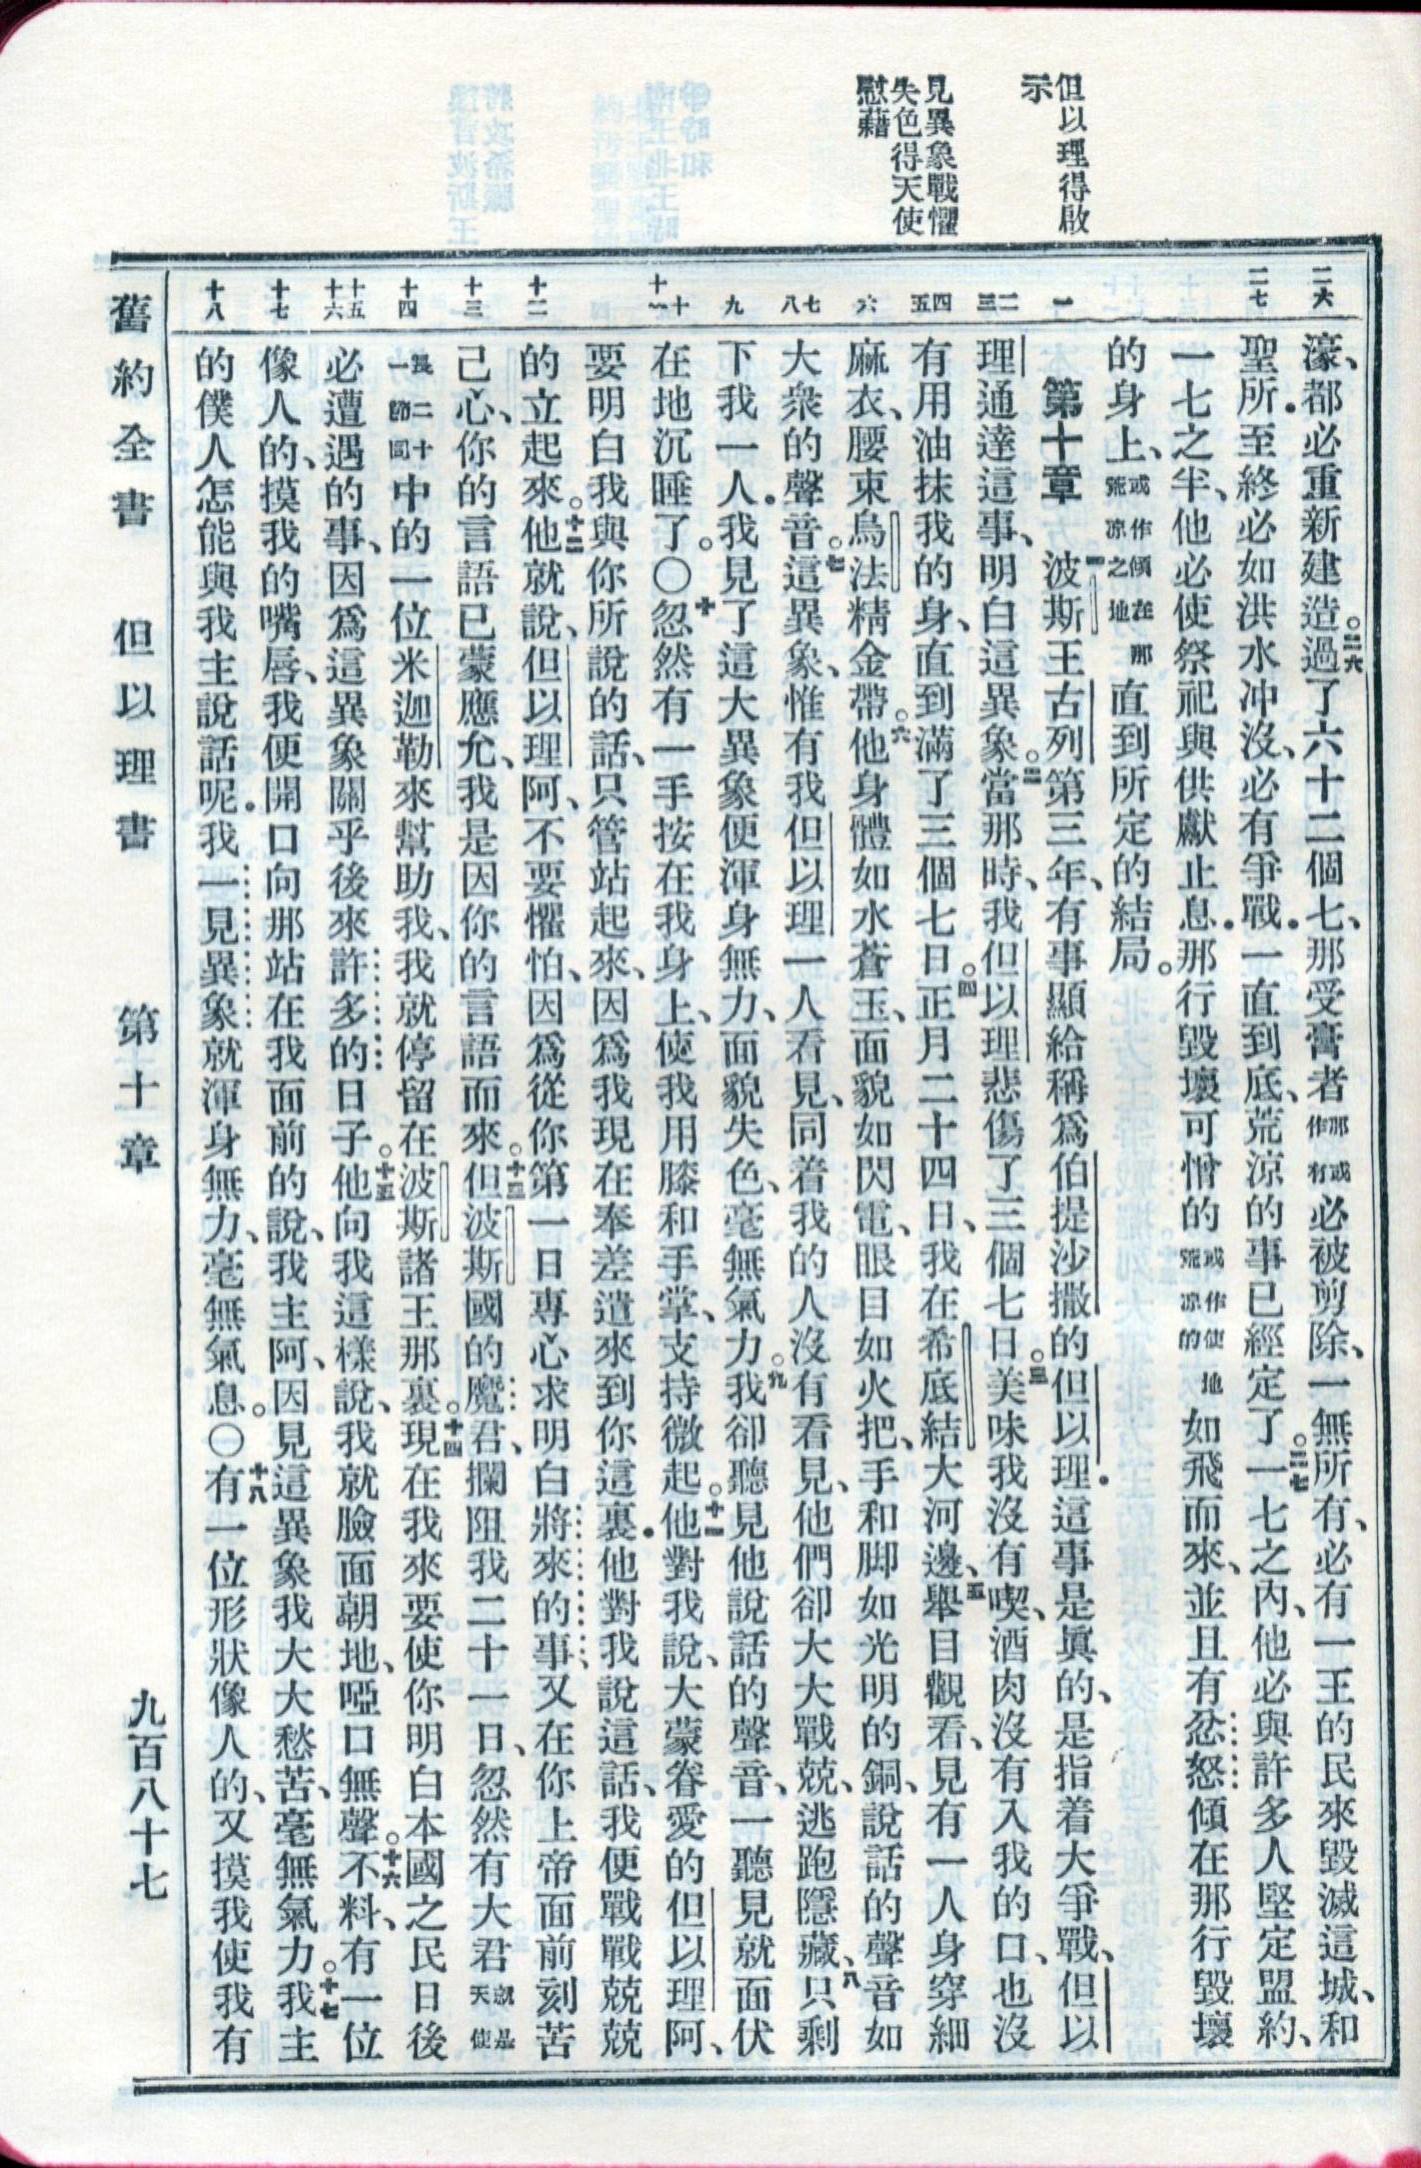 但以理得啟
示
見異象戰懼
失色得天使
慰藉
二六
二七
一
二三
四五
六
七八
九
十十一
十二
十三
十四
十五十六
十七
十八
濠、都必重新建造。二六過了六十二個七、那受膏者那或作有必被剪除、一無所有、必有一王的民來毀滅這城、和
聖所．至終必如洪水冲沒、必有爭戰．一直到底、荒涼的事已經定了。二七一七之內、他必與許多人堅定盟約、
一七之半、他必使祭祀與供獻止息．那行毀壞可憎的或作使地荒涼的如飛而來、並且有忿怒傾在那行毀壞
的身上、或作傾在那荒涼之地直到所定的結局。
第十章 一波斯王古列第三年、有事顯給稱爲伯提沙撒的但以理．這事是眞的、是指着大爭戰、但以
理通達這事、明白這異象。二當那時、我但以理悲傷了三個七日。三美味我沒有喫、酒肉沒有入我的口、也沒
有用油抹我的身、直到滿了三個七日。四正月二十四日、我在希底結大河邊、五舉目觀看、見有一人身穿細
麻衣、腰束烏法精金帶。六他身體如水蒼玉、面貌如閃電、眼目如火把、手和脚如光明的銅、說話的聲音如
大衆的聲音。七這異象、惟有我但以理一人看見、同着我的人沒有看見、他們卻大大戰兢、逃跑隱藏、八只剩
下我一人．我見了這大異象便渾身無力、面貌失色、毫無氣力。九我卻聽見他說話的聲音、一聽見就面伏
在地沉睡了。〇十忽然有一手按在我身上、使我用膝和手掌、支持微起。十一他對我說、大蒙眷愛的但以理阿、
要明白我與你所說的話、只管站起來、因爲我現在奉差遣來到你這裏．他對我說這話、我便戰戰兢兢
的立起來。十二他就說、但以理阿、不要懼怕、因爲從你第一日專心求明白將來的事、又在你上帝面前刻苦
己心、你的言語已蒙應允、我是因你的言語而來。十三但波斯國的魔君、攔阻我二十一日、忽然有大君就是天使
長二十一節同中的一位米迦勒來幫助我、我就停留在波斯諸王那裏。十四現在我來要使你明白本國之民日後
必遭遇的事、因爲這異象關乎後來許多的日子。十五他向我這樣說、我就臉面朝地、啞口無聲。十六不料、有一位
像人的、摸我的嘴唇、我便開口向那站在我面前的說、我主阿、因見這異象我大大愁苦、毫無氣力。十七我主
的僕人怎能與我主說話呢．我一見異象就渾身無力、毫無氣息。〇十八有一位形狀像人的、又摸我使我有
舊約全書 但以理書 第十章 九百八十七